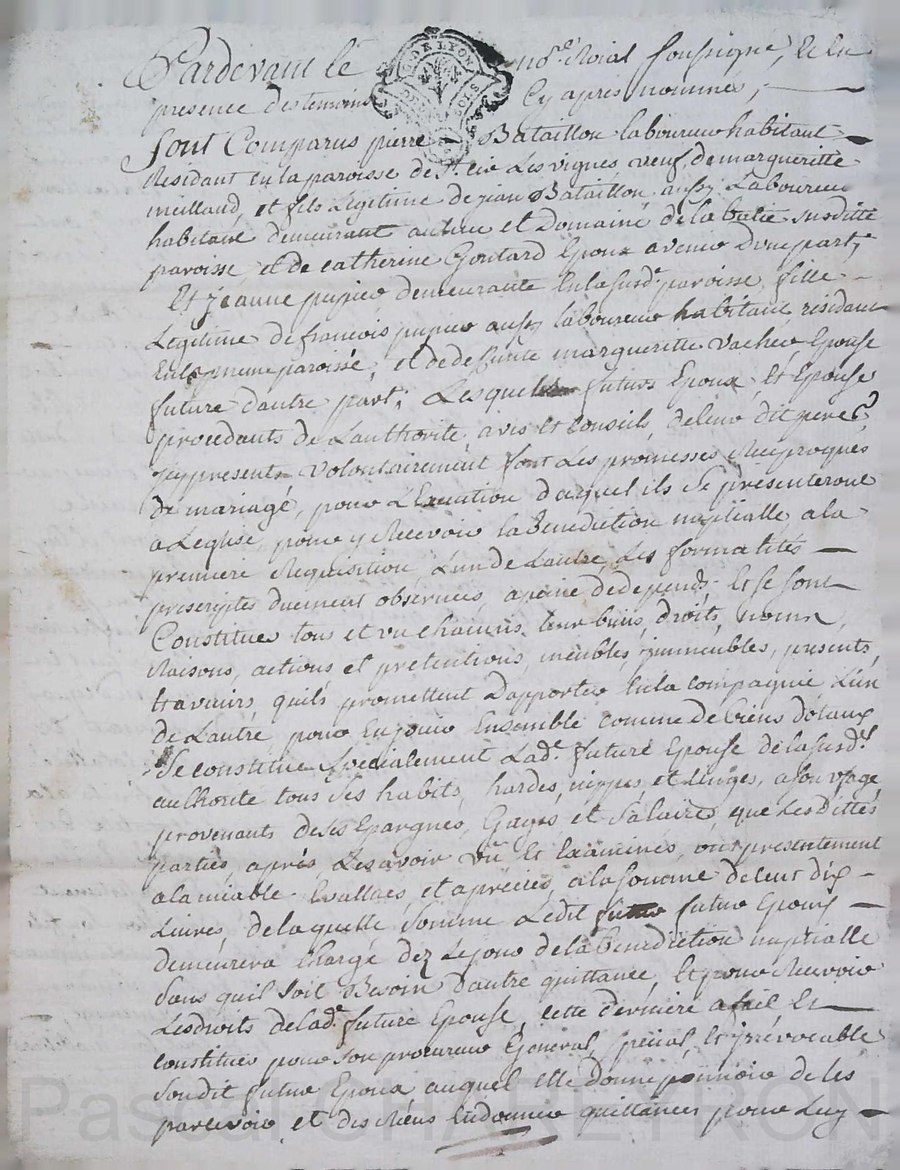 Pardevant le no.re Roial soussigné, et en
presence des temoins cy apres nommés,
Sont Comparus pierre Bataillon laboureur habitant
Residant en la paroisse de St. les vignes veuf de margueritte
meilland, et fils Legitime de jean Bataillon aussy Laboureur
habitant demeurant au lieu et Domaine de la batie susditte
paroisse, et de catherine Goutard Epoux avenir d'une part,
Et jeanne pupier demeurante En la susd.e paroisse, fille
Legitime de francois pupier aussy laboureur habitant, residant
En la meme paroisse, et de deffunte margueritte vacher Epouse
future d'autre part, Lesquels futurs Epoux, Et Epouse
procedants de L'authorité, avis et conseils, de leur dit peres
icy presents volontairement font Les promesses Reciproques
de mariage, pour L'Execution d'aquel ils se presenteront
a L'eglise pour y Recevoir la Benediction nuptialle, a la
premiere Requisition L'un de L'autre, Les formalités
prescriptes duement observées, apeine de depends; Et se sont
Constitués tous et un chacuns leur biens, droits, noms,
Raisons, actions, et pretentions, meubles, immeubles, presents,
et avenirs quils promettent D'apporter En la compagnie L'un
de L'autre pour En jouir Ensemble comme de biens dotaux
Se constitue specialement Lad.e future Epouse de la susd.e
authorité tous ses habits, hardes, nippes, et Linges, a son usage
provenants de ses Epargnes, Gages et Salaires, que Lesdittes
parties, aprés Les avoir vû Et Examinés, ont presentement
a lamiable Evallués, et apreciés, a la somme de cent dix
Livres, de laquelle somme Ledit futur Epoux
demeurera chargé dez Le jour de la Benediction nuptialle
sans quil soit Besoin d'autre quittance, Et pour Recevoir
Les droits de lad.e future Epouse, cette derniere a fait, Et
constitué pour son procureur General, special, Et jrrevocable
son dit futur Epoux auquel elle donne pouvoir de les
parcevoir et des Reçus En donner quittances pour Luy
Pascal CHAREYRON